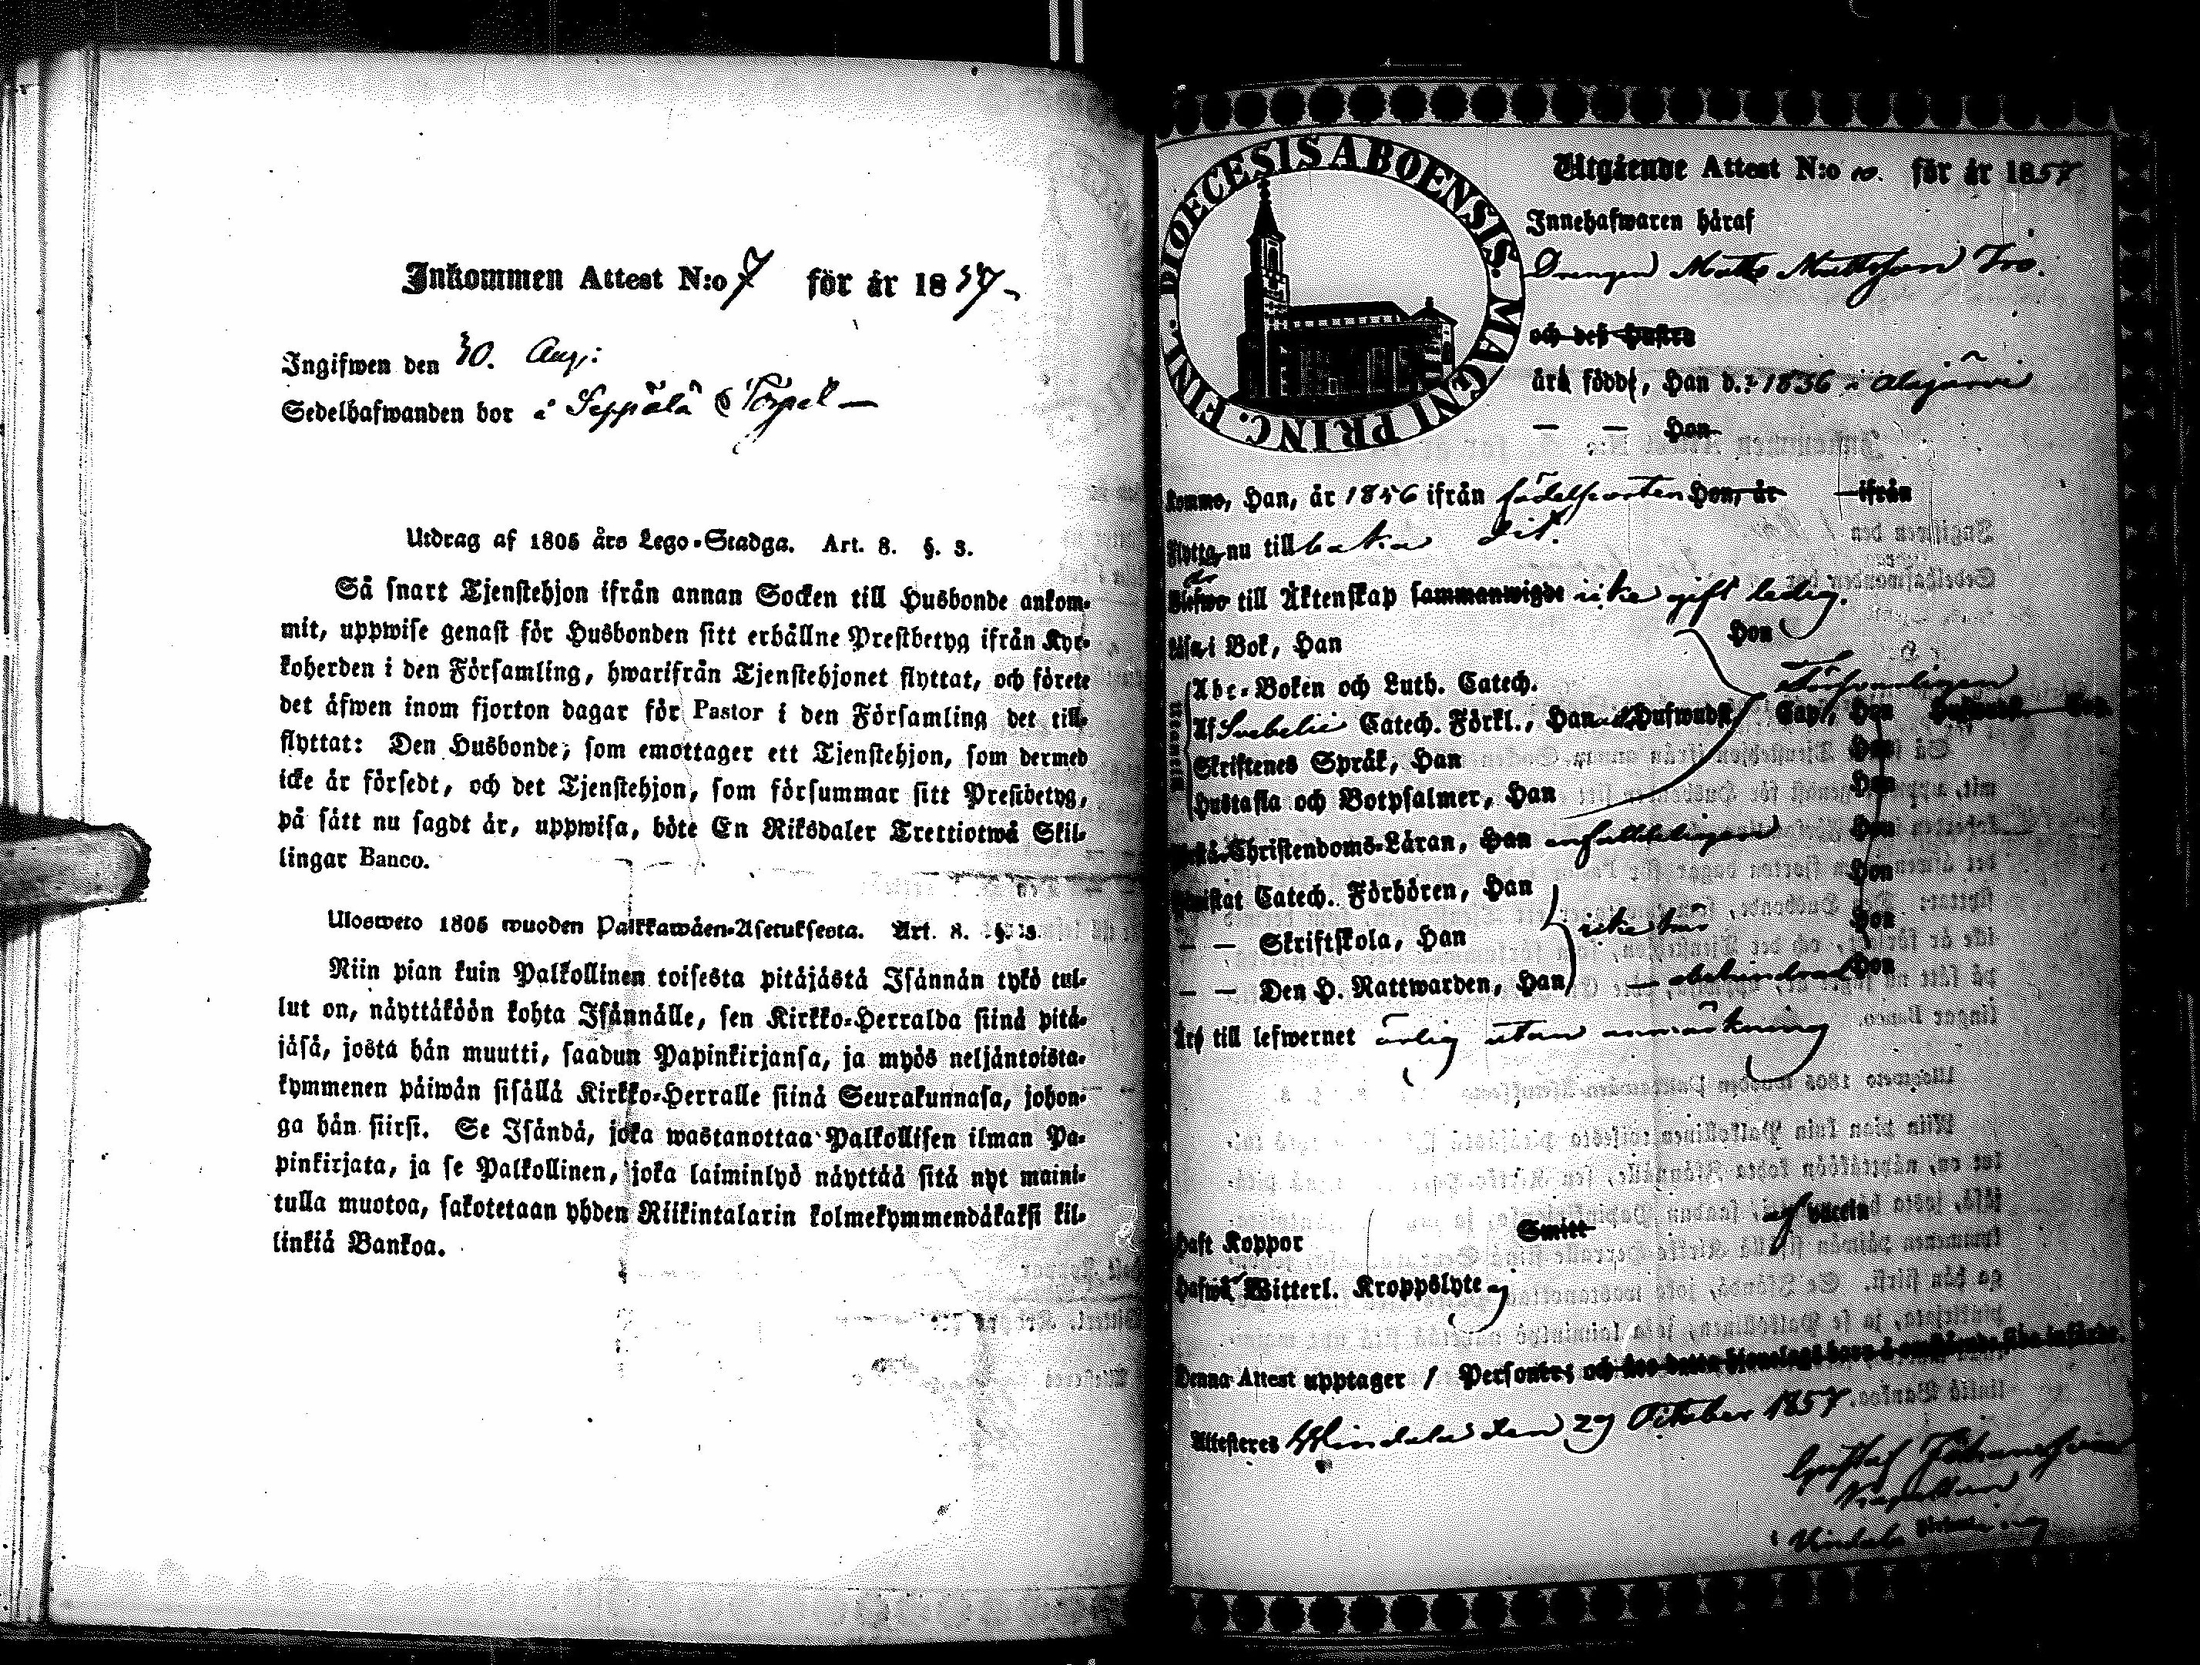 Inkommen Attest N:o 7 för år 1857
Ingifwen den 30. Aug:
Sedelhafwanden bor i Seppälä Torpet
Utdrag af 1805 års Lego-Stadga. Art. 8. §. 3.
Så snart Tjenstehjon ifrån annan Socken till Husbonde ankom-
mit, uppwise genast för Husbonden sitt erhållne Prestbetyg ifrån Kyr-
koherden i den Församling, hwarifrån Tjenstehjonet flyttat, och förete
det äfwen inom fjorton dagar för Pastor i den Församling det till-
flyttat: Den Husbonde, som emottager ett Tjenstehjon, som dermed
icke är försedt, och det Tjenstehjon, som försummar sitt Prestbetyg,
på sätt nu sagdt är, uppwisa, böte En Riksdaler Trettiotwå Skil-
lingar Banco.
Ulosweto 1805 wuoden Palkkawäen-Asetuksesta. Art. 8. §. 3.
Niin pian kuin Palkollinen toisesta pitäjästä Isännän tykö tul-
lut on, näyttäköön kohta Isännälle, sen Kirkko-Herralda siinä pitä-
jäsä, josta hän muutti, saadun Papinkirjansa, ja myös neljäntoista-
kymmenen päiwän sisällä Kirkko-Herralle siinä Seurakunnasa, johon-
ga hän siirsi. Se Isändä, joka wastanottaa Palkollisen ilman Pa-
pinkirjata, ja se Palkollinen, joka laiminlyö näyttää sitä nyt maini-
tulla muotoa, sakotetaan yhden Riikintalarin kolmekymmendäkaksi kil-
linkiä Bankoa.
DIOECESIS ABOENSIS. MAGNI PRINC. FINL.
Utgående Attest N:o 10. för år 1857
Innehafwaren häraf
Drengen Matts Mattsson Iro.
och dess Hustru
ära född, Han d. 1836 i Alajärvi
— — Hon
komme, Han, år 1856 ifrån födelseorten Hon, år — ifrån
Flytta nu till baka dit.
är
Blefwo till Äktenskap sammanwigde icke gift ledig.
Läsa i Bok, Han Hon
Abc-Boken och Luth. Catech. Församlingen
Af Svebelii Catech. Förkl., Han Hufwudst. Cap, Hon
Skriftenes Språk, Han Hon
Hustafla och Botpsalmer, Han Hon
Christendoms-Läran, Han enfaldeligen Hon
Catech. Förhören, Han Hon
— — Skriftskola, Han icke Hon
— — Den H. Nattwarden, Han Hon
Äro till lefwernet ärlig utan anmärkning
Haft Koppor Smitt- vaccin
Hafwa Witterl. Kroppslyte ej
Denna Attest upptager 1 Personer
Attesteres Windala den 29 October 1857.
Gustaf Johansson
Kapellan
i Windala